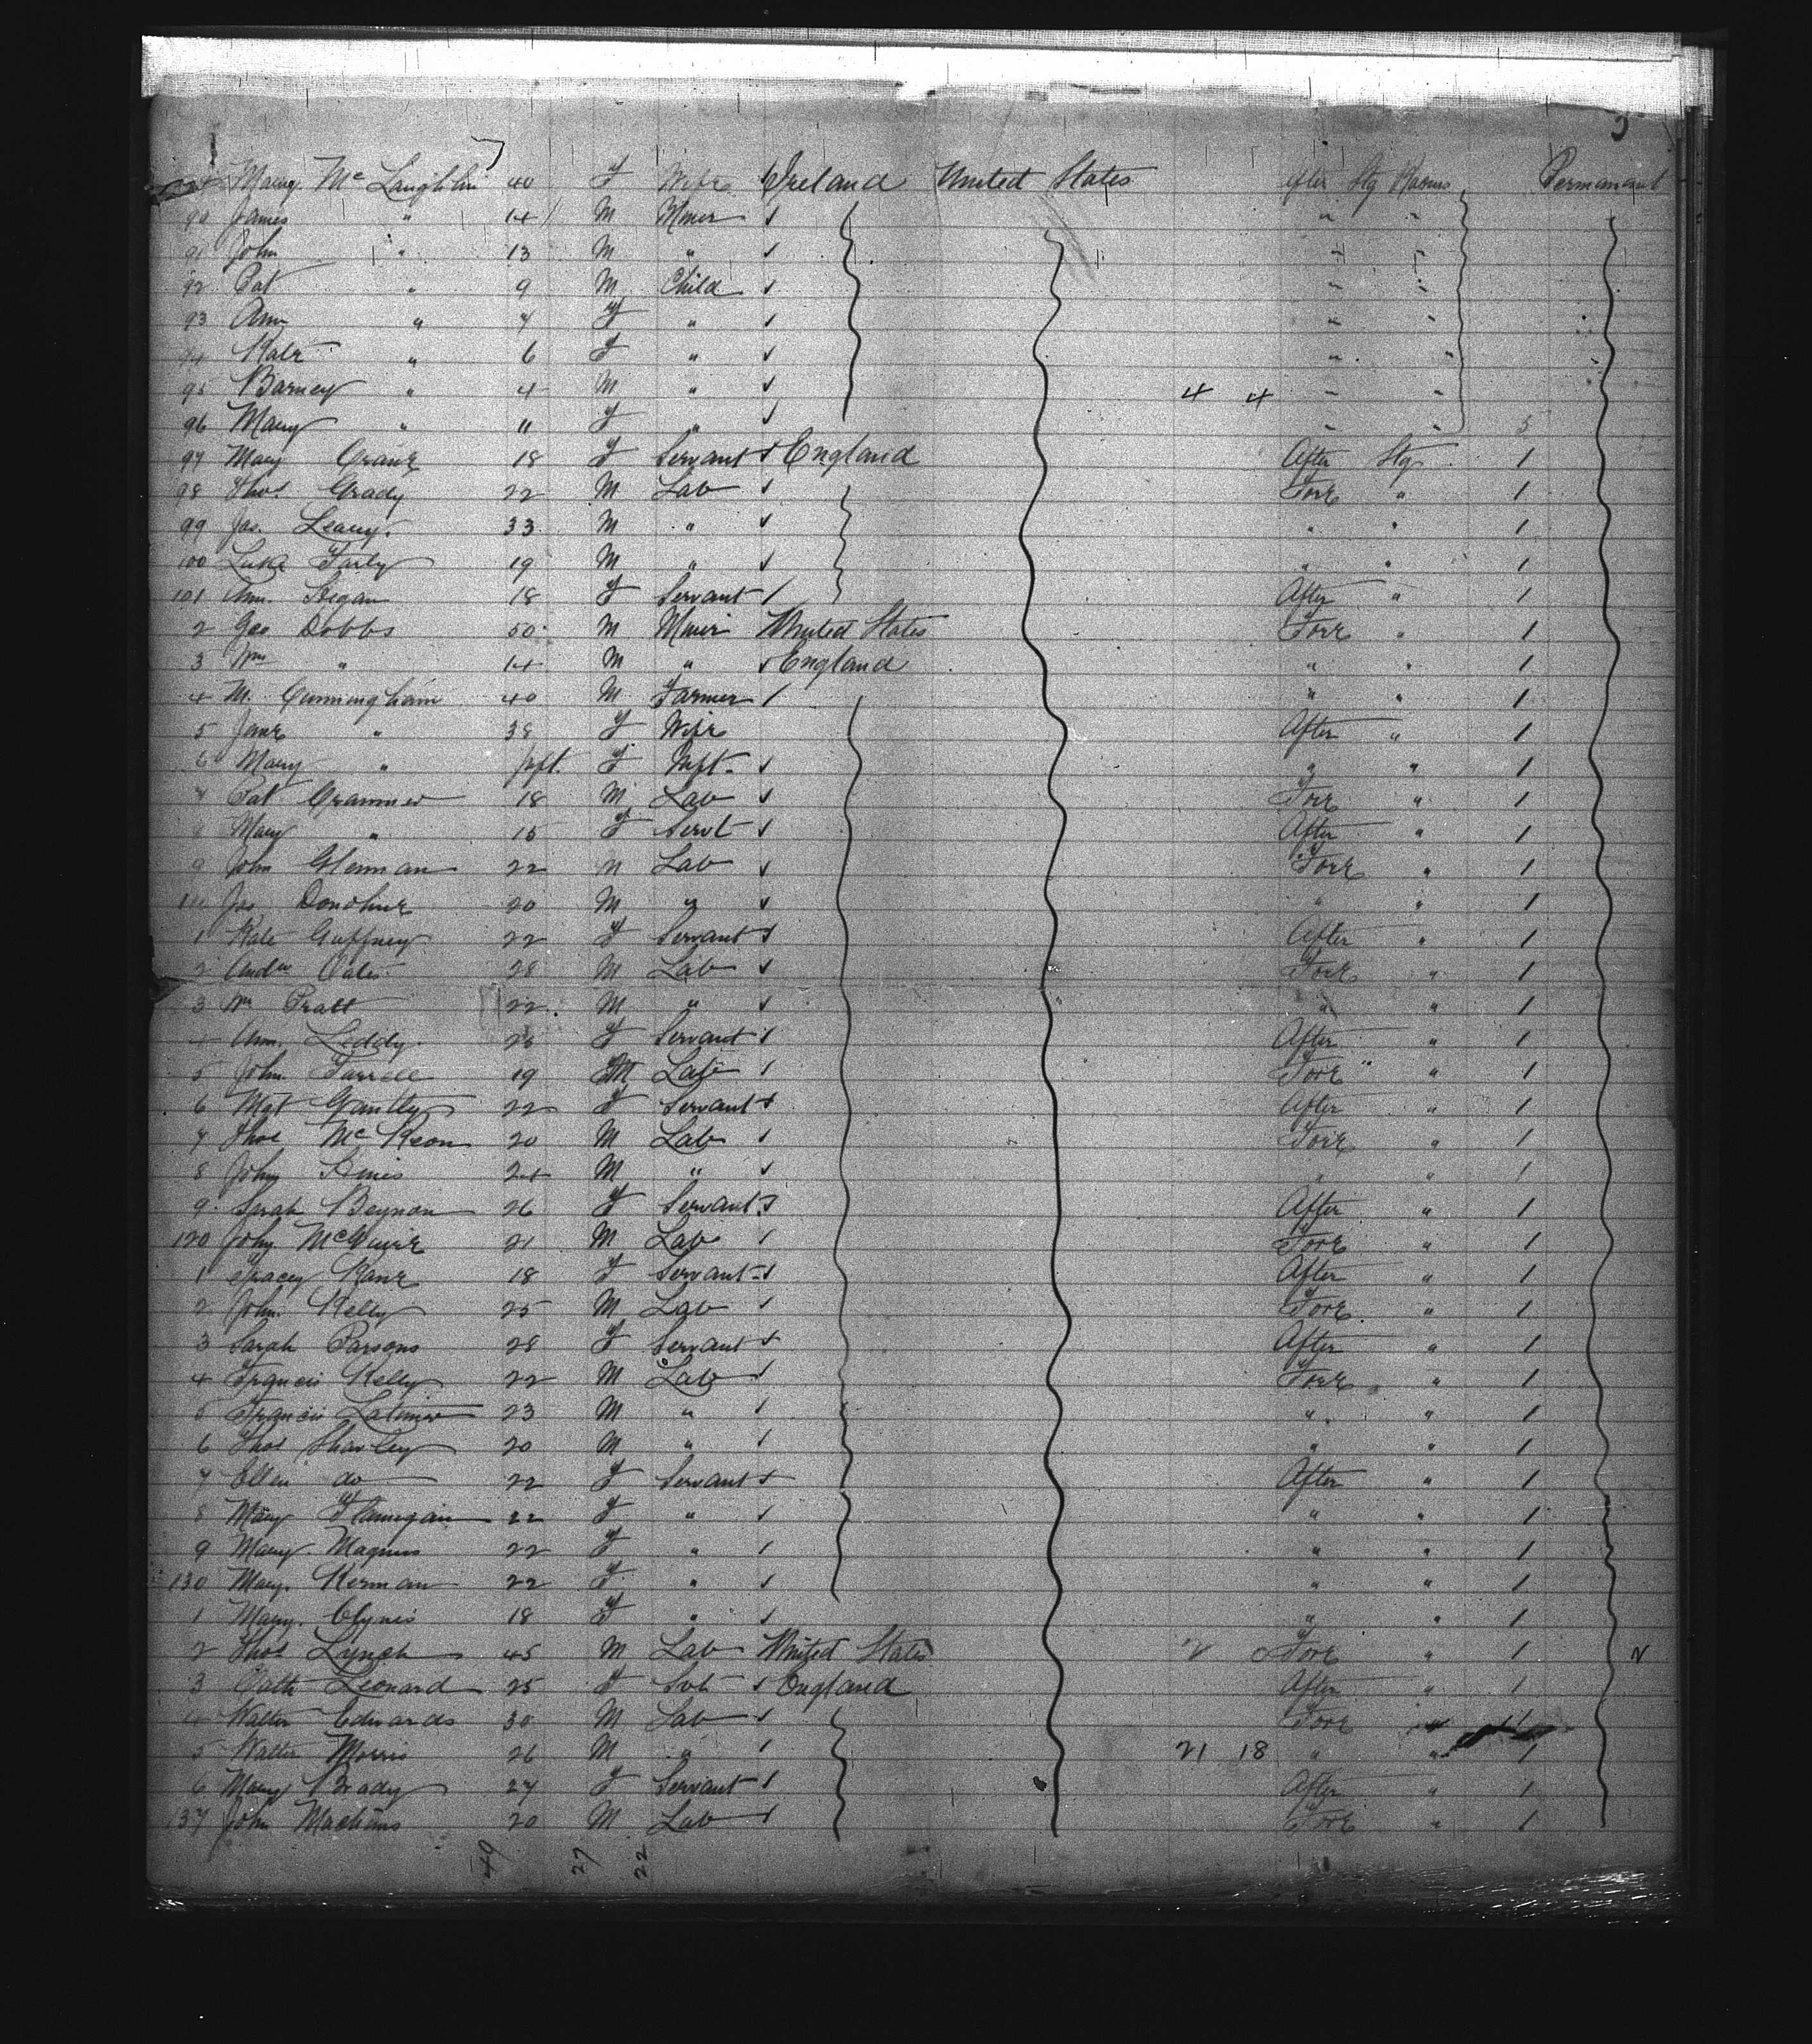 Mary McLaughlin 40 F Wife Ireland United States After Stg Rooms Permanent
90 James " 14 M Miner " "
91 John " 13 M " " "
92 Pat " 9 M Child " "
93 Ann " 7 F " " "
94 Kate " 6 F " " "
95 Barney " 4 M " 4 4 " "
96 Mary " 11 F " " " 5
97 Mary Crane 18 F Servant England After Stg 1
98 Thos Grady 22 M Lab Fore " 1
99 Jas. Leary. 33 M " " " 1
100 Luke Farly 19 M " " " 1
101 Ann. 18 F Servant After " 1
2 Geo Dobbs 50 M Miner United States Fore " 1
3 Wm " 14 M " England " " 1
4 M. Cunningham 40 M Farmer " " 1
5 Jane " 38 F Wife After " 1
6 Mary " Inft. F Inft. " " 1
7 Pat 18 M Lab Fore " 1
8 Mary " 15 F Servt After " 1
9 John Glennan 22 M Lab Fore " 1
110 Jas Donohue 20 M " " " 1
1 Kate Gaffney 22 F Servant After " 1
2 Andw 28 M Lab Fore " 1
3 Wm Pratt 22 M " " " 1
4 Ann. Leddy. 26 F Servant After " 1
5 John Farrell 19 M Lab Fore " 1
6 Mgt Gantly 22 F Servant After " 1
7 Thos McKeon 20 M Lab Fore " 1
8 John 24 M " " " 1
9 Sarah Beynon 26 F Servant After " 1
120 John McGuire 21 M Lab Fore " 1
1 Kane 18 F Servant After " 1
2 John Kelly 25 M Lab Fore " 1
3 Sarah Parsons 28 F Servant After " 1
4 Francis Kelly 22 M Lab Fore " 1
5 Francis Latimer 23 M " " " 1
6 Thos Sharley 20 M " " " 1
7 Ellen do 22 F Servant After " 1
8 Mary Flannegan 22 F " " " 1
9 Mary Magnus 22 F " " " 1
130 Mary Kernan 22 F " " " 1
1 Mary. Clynes 18 F " " " 1
2 Thos Lynch 45 M Lab United States Fore " 1
3 Leonard 25 F Svt England After " 1
4 Walter Edwards 30 M Lab Fore " 1
5 Walter Morris 26 M " 21 18 " " 1
6 Mary Brady 27 F Servant After " 1
137 John 20 M Lab Fore " 1
49 27 22